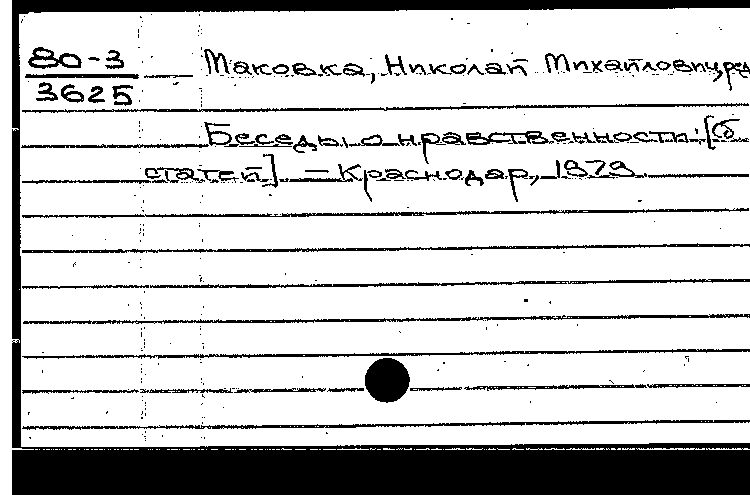 80-3
3625
Маковка, Николай Михайлович, ред
Беседы о нравственности: [сб
статей]. – Краснодар, 1979